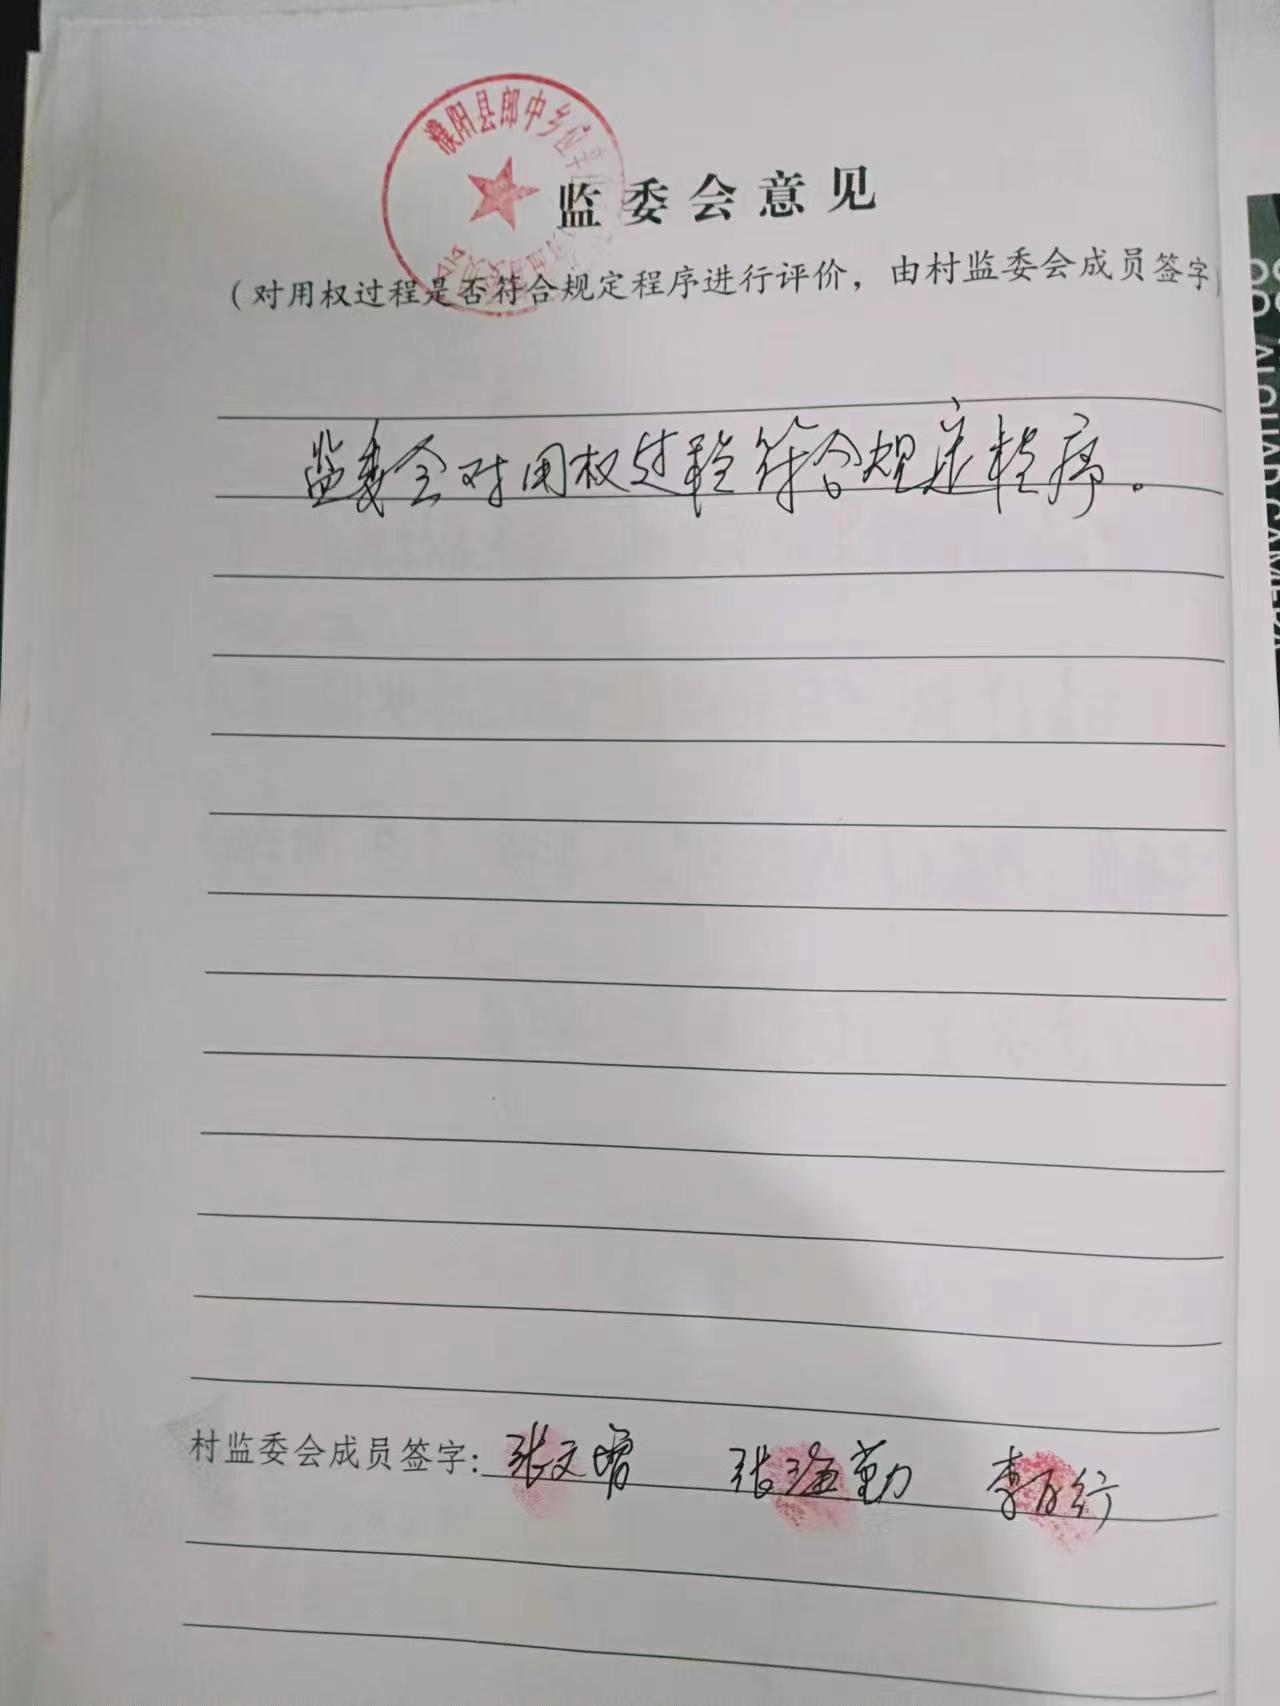 濮阳县郎中乡
监委会意见
（对用权过程是否符合规定程序进行评价，由村监委会成员签字）
监委会对用权过程符合规定程序。
村监委会成员签字：张文增 张 勤 李
QUAD CAMERA